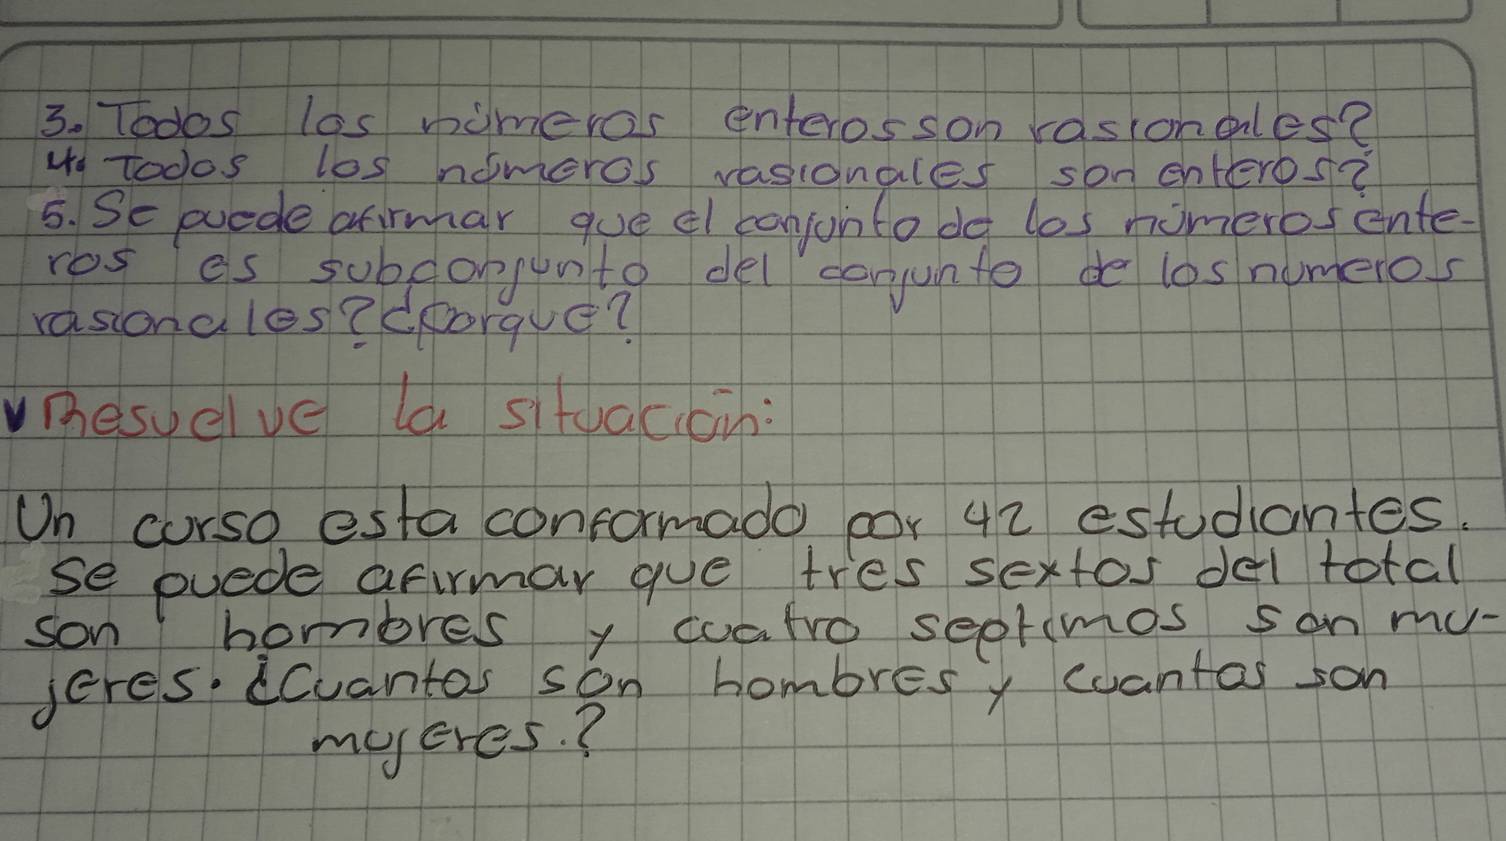 3. Todos los números enteros son rasionales?
4. Todos los números rasionales son enteros?
5. Se puede afirmar que el conjunto de los números ente-
ros es subconjunto del conjunto de los numeros
rasionales? ¿Porque?
Resuelve la situación:
Un curso esta conformado por 42 estudiantes.
se puede afirmar que tres sextos del total
son hombres y cuatro septimos son mu-
jeres. ¿Cuantos son hombres y cuantas son
mujeres.?